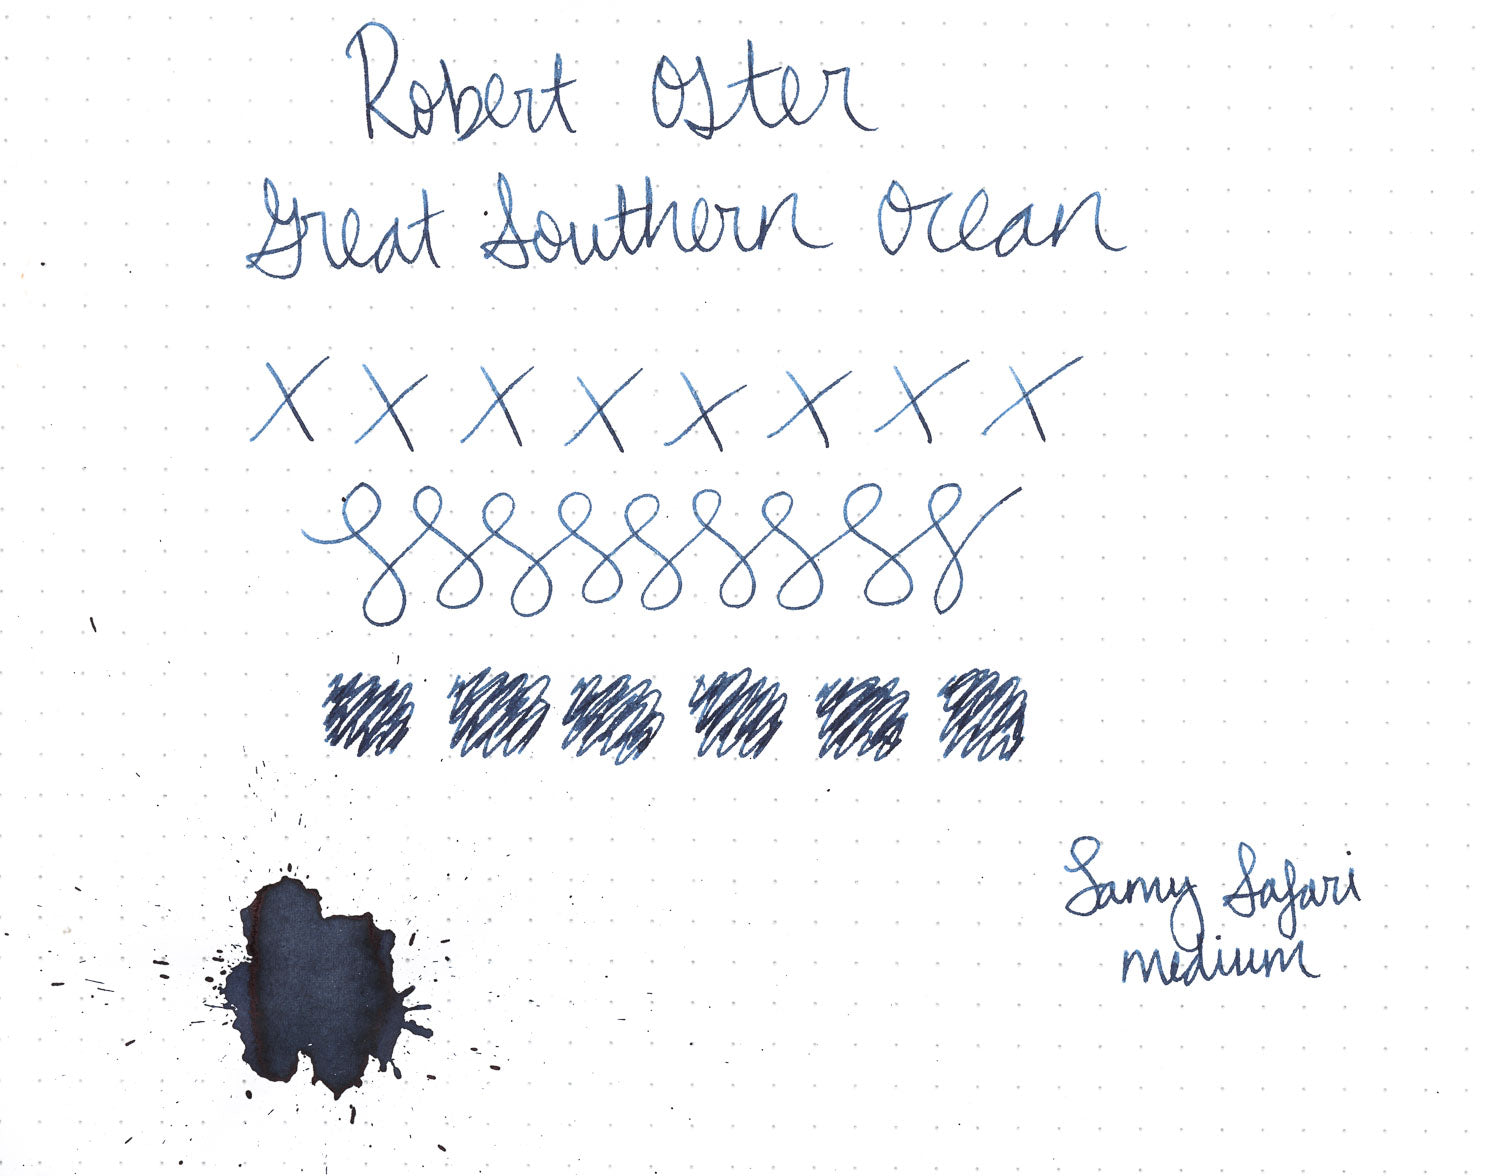 Robert Oster
Great Southern Ocean
X X X X X X X X
Lamy Safari
medium